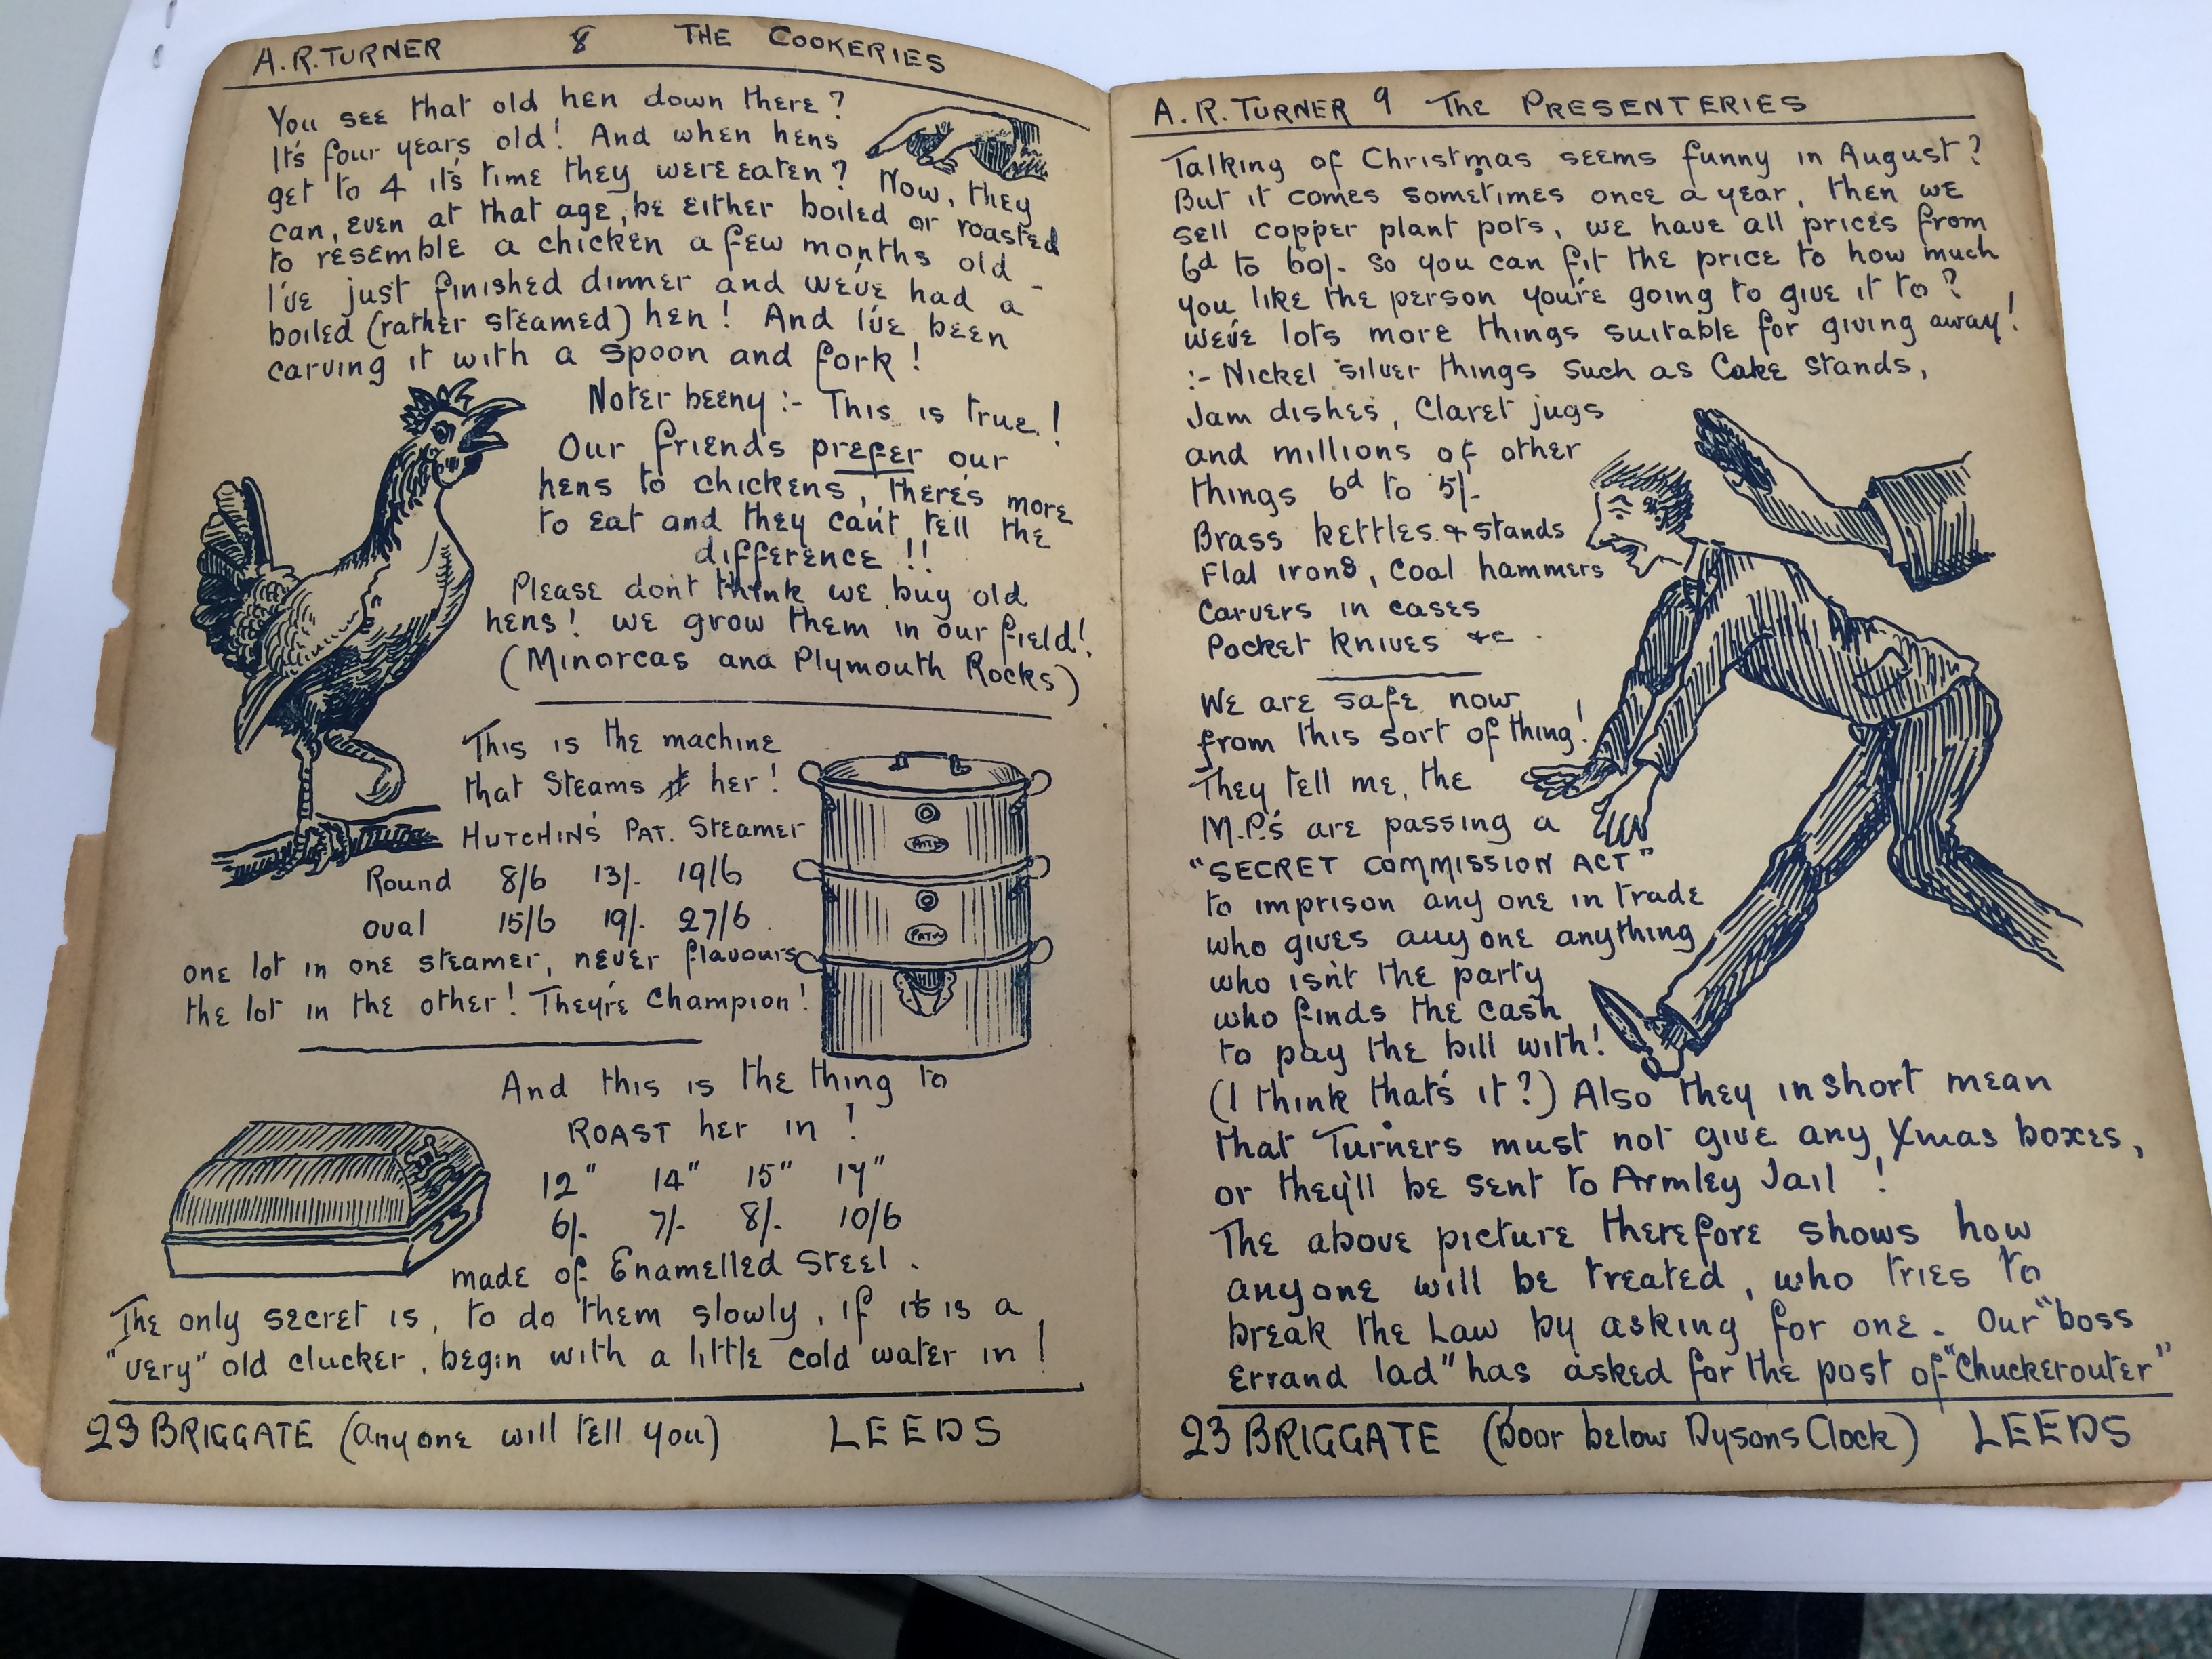 A.R.TURNER 8 THE COOKERIES
You see that old hen down there?
It's four years old! And when hens
get to 4 it's time they were eaten? Now, they
can, even at that age, be either boiled or roasted
to resemble a chicken a few months old -
I've just finished dinner and we've had a
boiled (rather steamed) hen! And I've been
carving it with a spoon and fork!
Noter beeny :- This is true!
Our friends prefer our
hens to chickens, there's more
to eat and they can't tell the
difference !!
Please don't think we buy old
hens! we grow them in our field!
(Minorcas and Plymouth Rocks)
This is the machine
that Steams her!
HUTCHIN'S PAT. Steamer
Round 8/6 13/- 19/6
oval 15/6 19/- 27/6
one lot in one steamer, never flavours
the lot in the other! They're Champion!
PATN
And this is the thing to
ROAST her in !
12" 14" 15" 17"
6/- 7/- 8/- 10/6
made of Enamelled Steel.
The only secret is, to do them slowly, if it is a
"very" old clucker, begin with a little cold water in!
23 BRIGGATE (anyone will tell you) LEEDS
A.R. TURNER 9 The PRESENTERIES
Talking of Christmas seems funny in August?
But it comes sometimes once a year, then we
sell copper plant pots, we have all prices from
6d to 60/- so you can fit the price to how much
you like the person you're going to give it to?
we've lots more things suitable for giving away!
:- Nickel silver things such as Cake stands,
Jam dishes, Claret jugs
and millions of other
things 6d to 5/-
Brass kettles & stands
Flat irons, Coal hammers
Carvers in cases
Pocket Knives &c.
We are safe now
from this sort of thing!
They tell me, the
M.P.'s are passing a
"SECRET COMMISSION ACT"
to imprison any one in trade
who gives any one anything
who isn't the party
who finds the cash
to pay the bill with!
(I think that's it?) Also they in short mean
that Turners must not give any Xmas boxes,
or they'll be sent to Armley Jail !
The above picture therefore shows how
anyone will be treated, who tries to
break the Law by asking for one. Our "boss
Errand lad" has asked for the post of "Chuckerouter"
23 BRIGGATE (Door below Dysons Clock) LEEDS